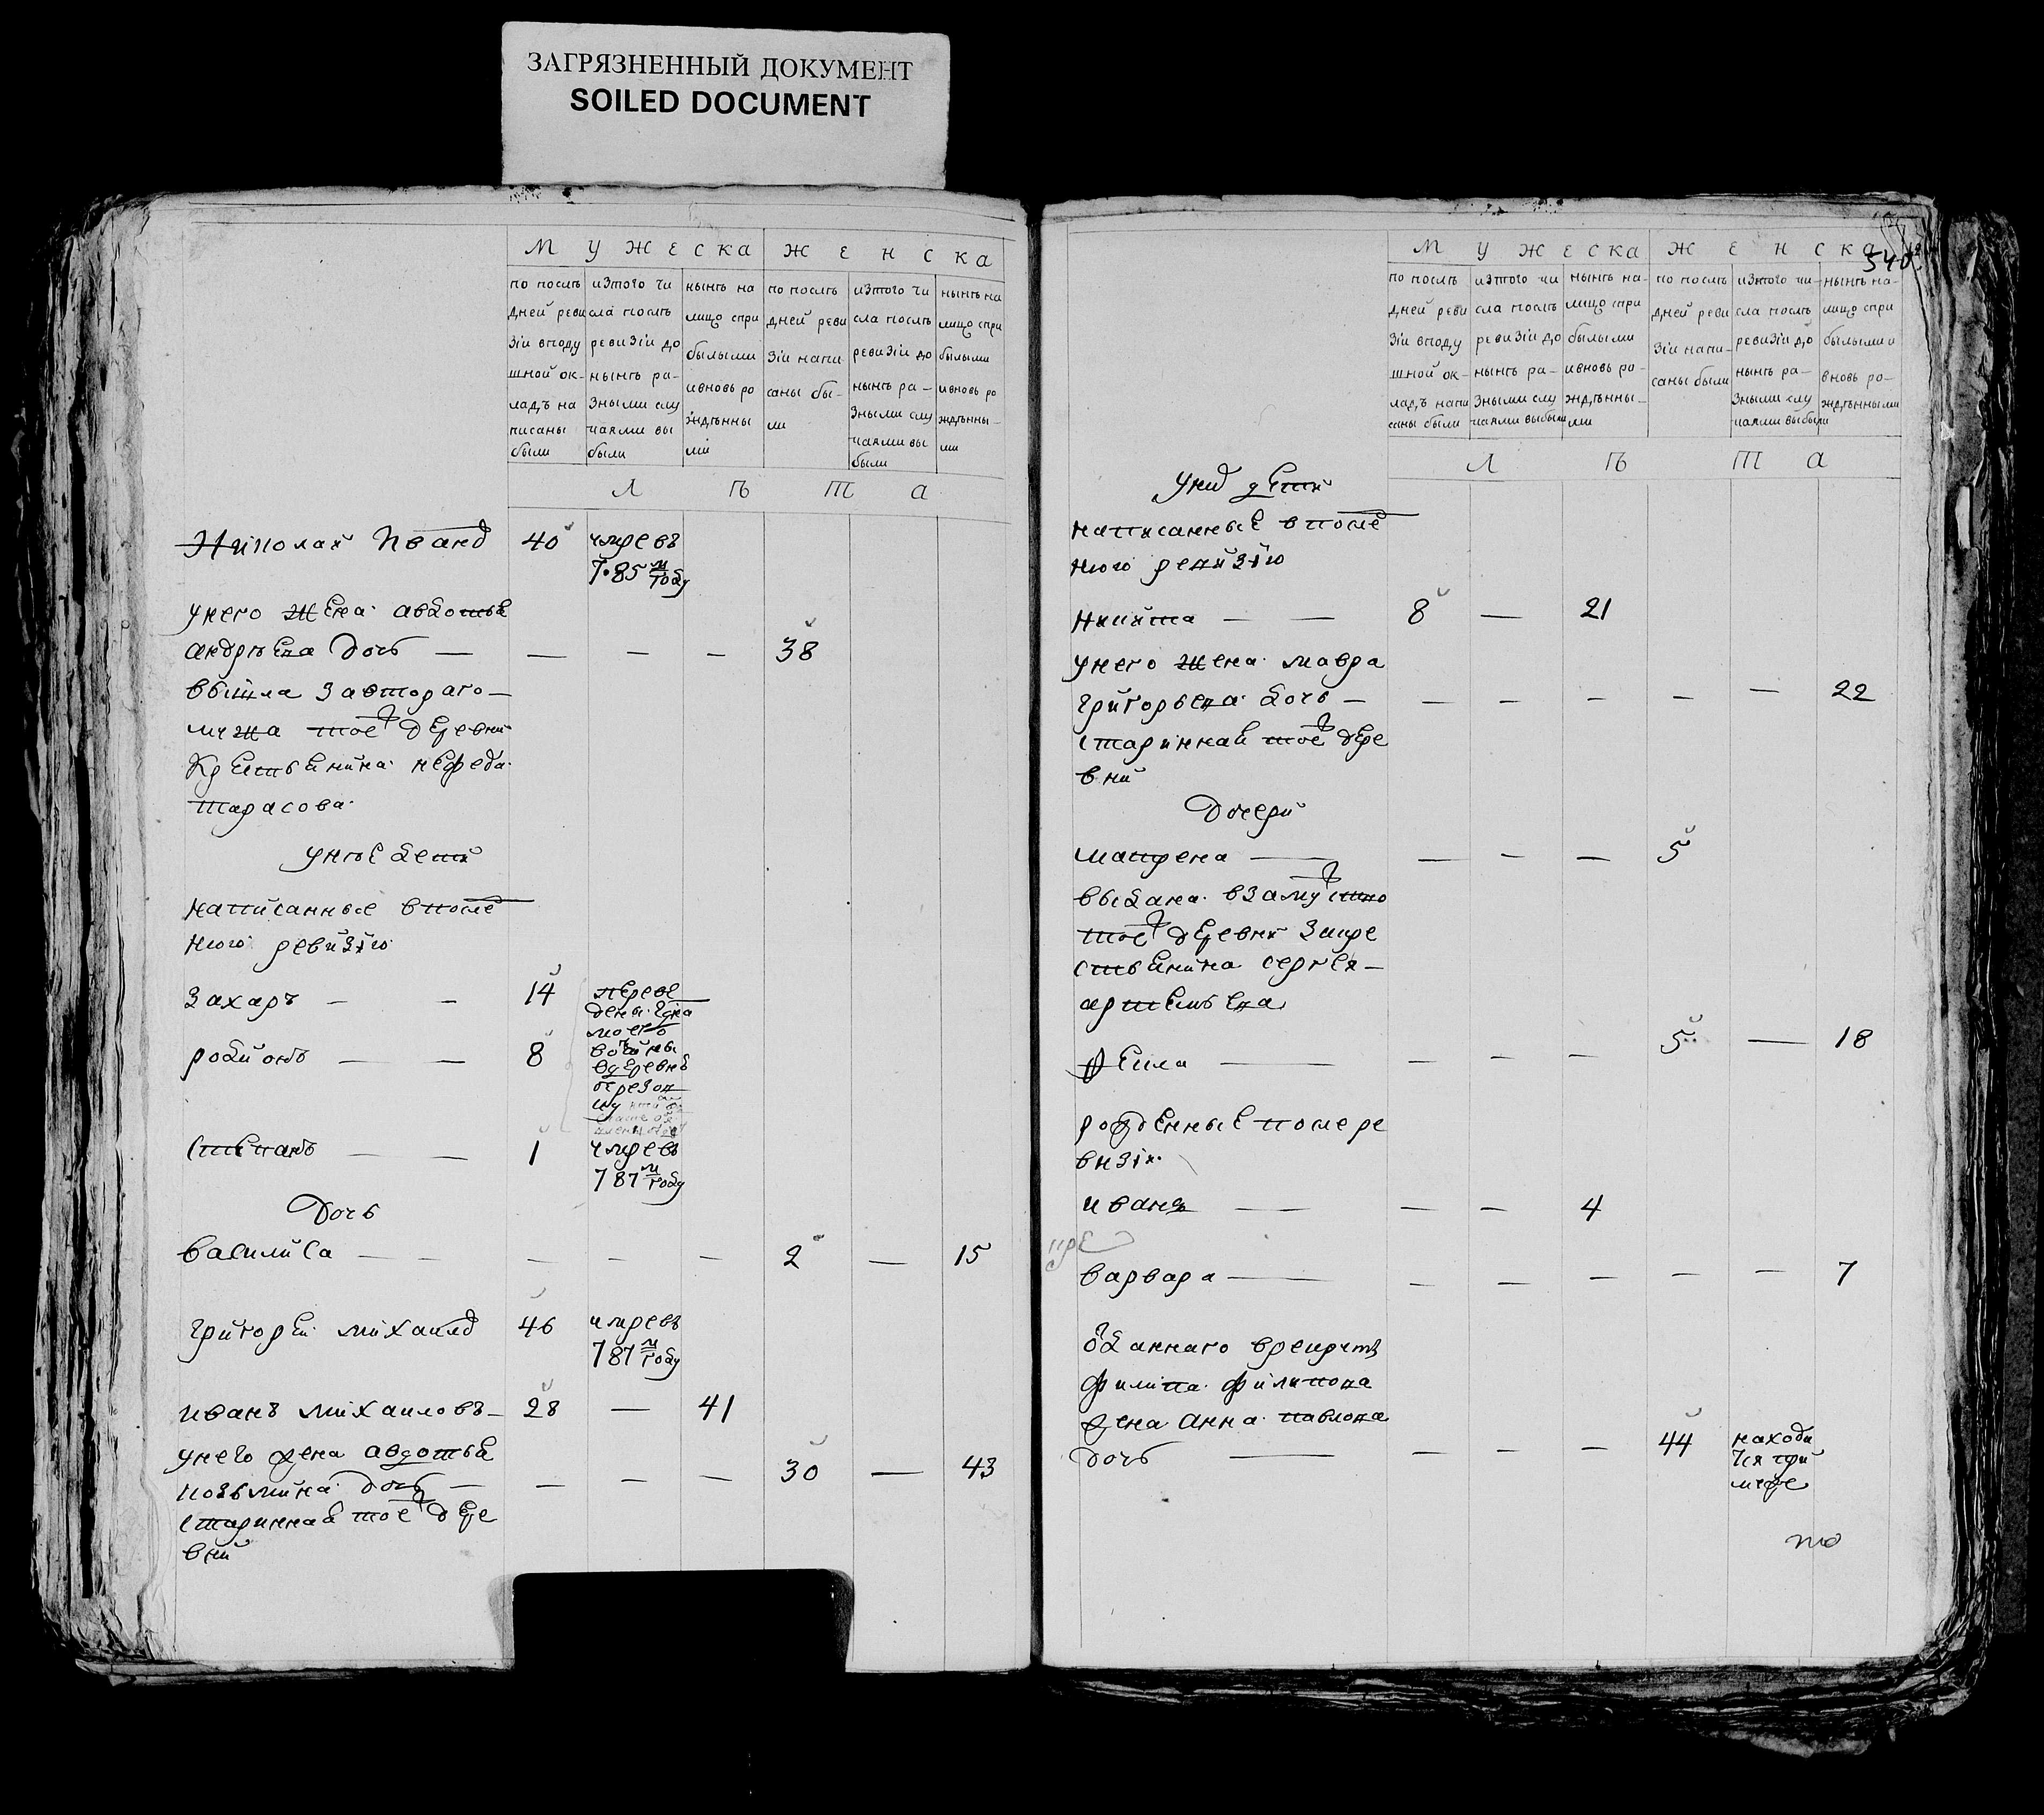 ЗАГРЯЗНЕННЫЙ ДОКУМЕНТ
SOILED DOCUMENT
МУЖЕСКА ЖЕНСКА
по послѣдней ревизіи вподушной окладъ написаны были
изтого числа послѣ ревизіи до нынѣ разными случаями выбыли
нынѣ налицо сприбылыми ивновь рожденными
по послѣдней ревизіи написаны были
изтого числа послѣ ревизіи до нынѣ разными случаями выбыли
нынѣ налицо сприбылыми ивновь рожденны-ми
ЛѢТА
Николай Иванов 40 умре въ
785 м году
унего жена авдотья
андрѣева дочь — — — — 38
вышла завтораго —
мужа тоеж деревни
крестьянина нефеда
тарасова
унеѣ дети
написанные впослед
нюю ревизию
захаръ — — 14 переве
дены
родионъ — — 8
вдеревнѣ
степанъ — — 1 умре въ
787 м году
Дочь
василиса — — — — — 2 — 15
григорей михаилов 46 умре въ
787 м году
иванъ михаиловъ — 28 — 41
унего жена авдотья
козьмина дочь — — — — 30 — 43
старинная тоеж дере
вни
540
МУЖЕСКА ЖЕНСКА
по послѣдней ревизіи вподушной окладъ написаны были
изтого числа послѣ ревизіи до нынѣ разными случаями выбыли
нынѣ налицо сприбылыми ивновь рожденны-ми
по послѣдней ревизіи написаны были
изтого числа послѣ ревизіи до нынѣ разными случаями выбыли
нынѣ налицо сприбылыми вновь рожденными
ЛѢТА
уних дети
написанные впослед
нюю ревизию
никита — — 8 — 21
унего жена мавра
григорьева дочь — — — — — — 22
стариннай тоеж дере
вни
Дочери
матрена — — — — 5
выдана взамуство
тоеж деревни закре
стьянина сергея —
артемьева
фекла — — — — 5 — 18
рожденные после ре
визіи
иванъ — — — 4
варвара — — — — — — 7
отданнаго врекруты
филипа филипова
жена анна павлова
дочь — — — — 44 находи
тся при
муже